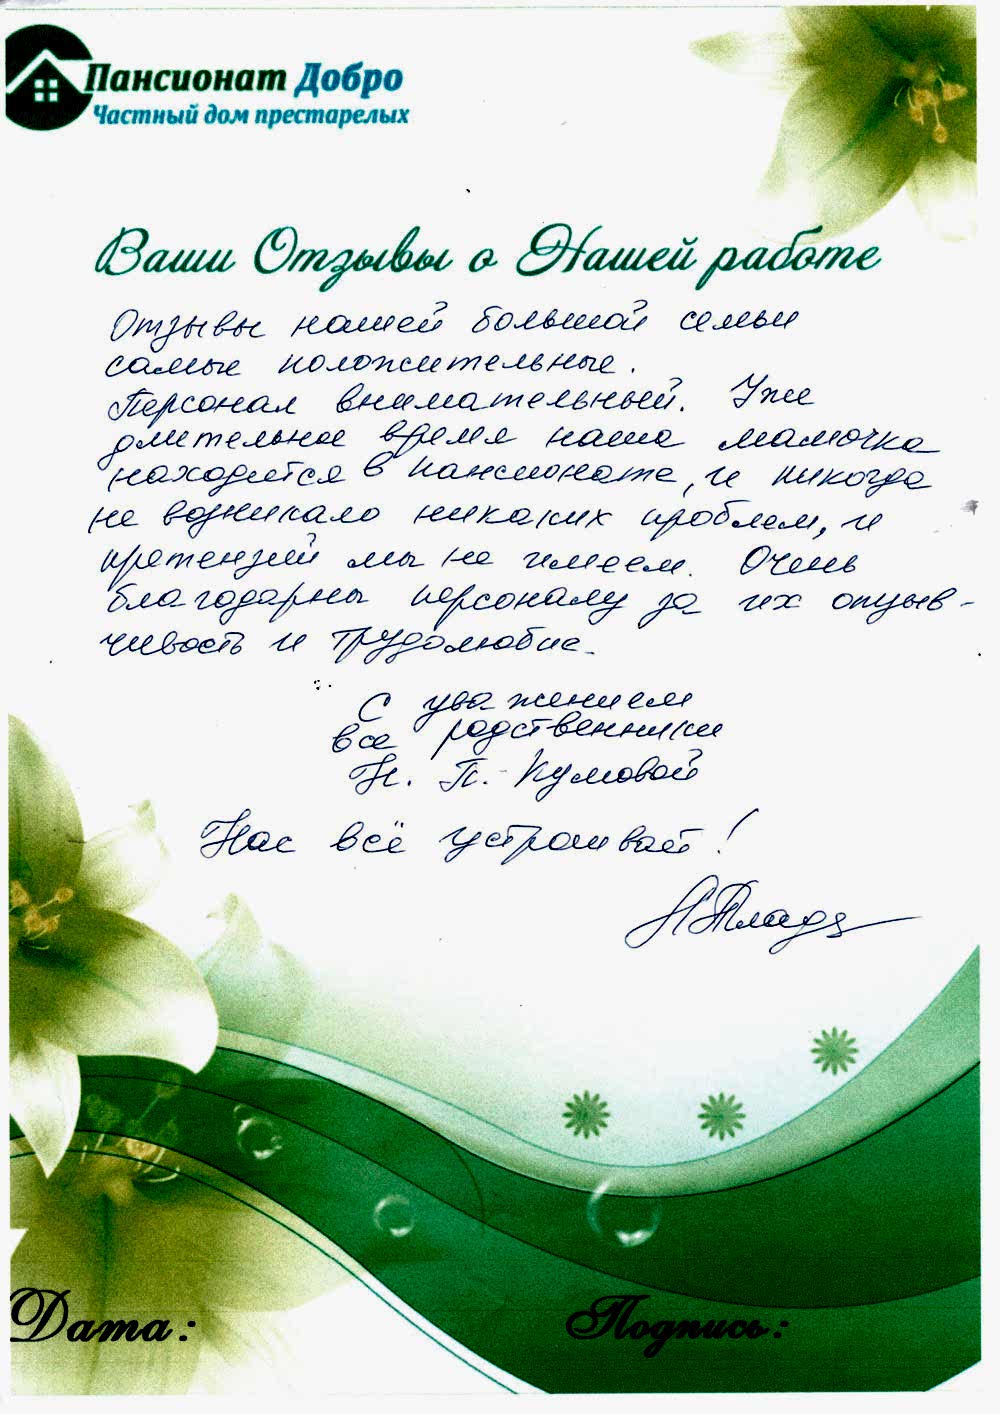 Пансионат Добро
Частный дом престарелых
Ваши Отзывы о Нашей работе
Отзывы нашей большой семьи
самые положительные.
Персонал внимательный. Уже
длительное время наша мамочка
находится в пансионате, и никогда
не возникало никаких проблем, и
претензий мы не имеем. Очень
благодарны персоналу за их отзыв-
чивость и трудолюбие.
С уважением
все родственники
Н. П. Кумовой
Нас всё устраивает!
Дата:
Подпись: